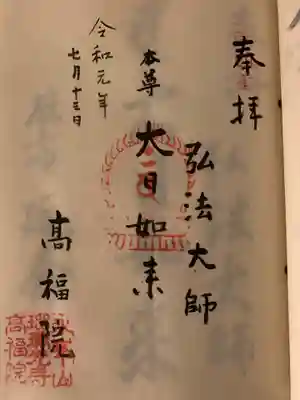 奉拝
弘法大師
本尊
大日如来
高福院
令和元年
七月十三日
高福院